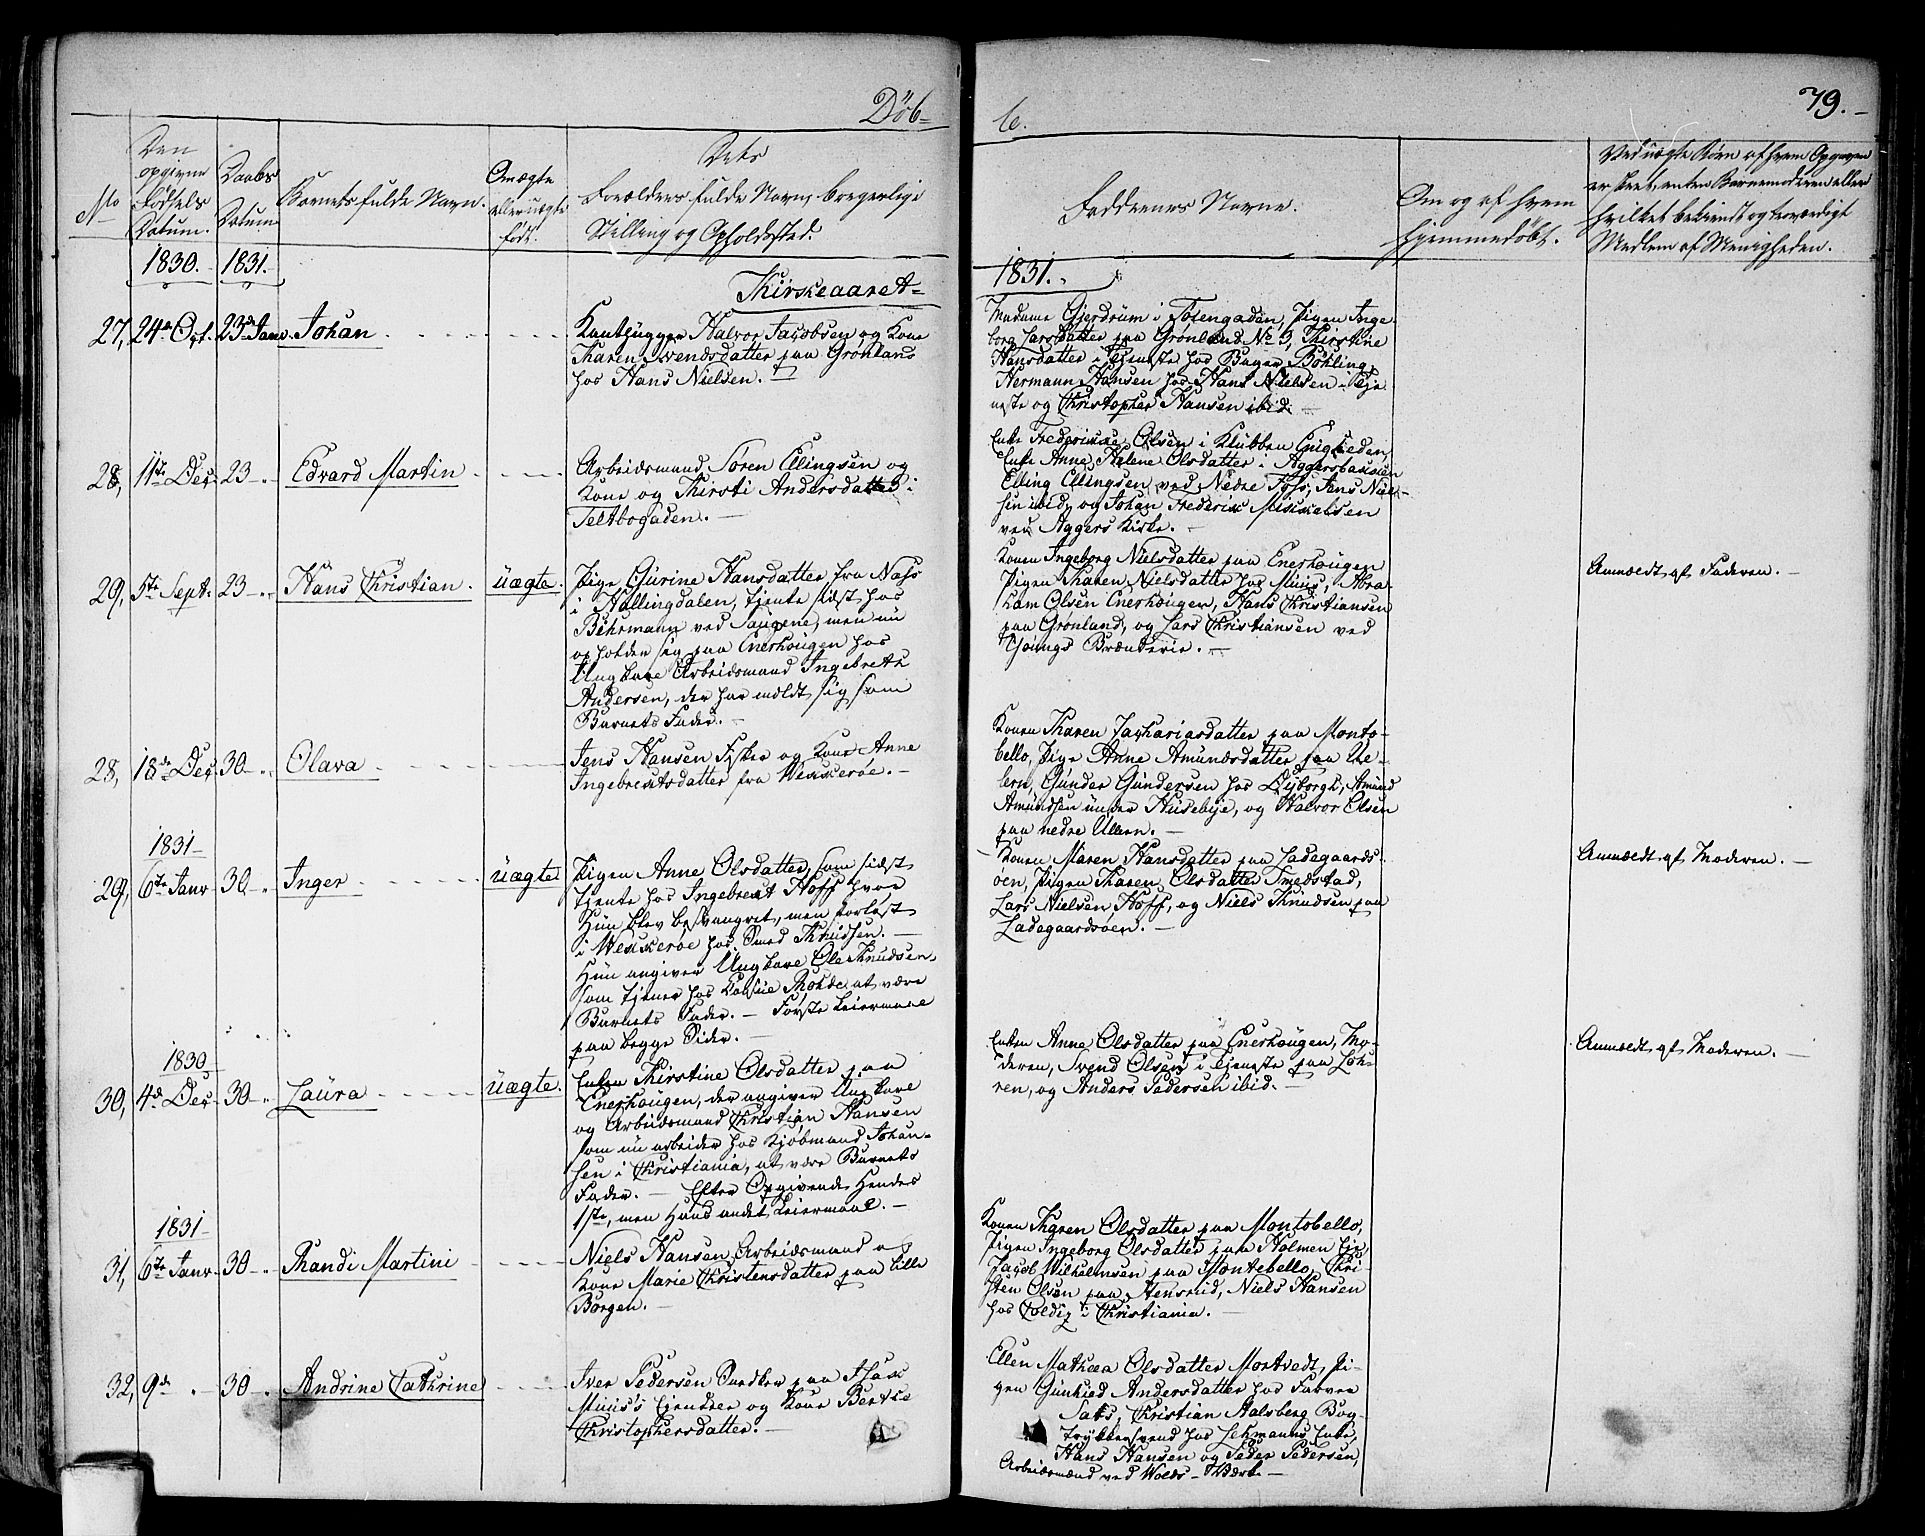 Döb-
te.
79.-
No
Den opgivne Fødsels Datum.
Daabs Datum
Barnets fulde Navn.
Om ægte eller uægte født.
Dets Forældres fulde Navn, borgerlige Stilling og Opholdssted.
Faddernes Navne.
Om og af hvem hjemmedöbt.
Ved uægte Börn af hvem Opgaven er skeet, enten Barnemoderen eller hvilket bekiendt og troværdigt Medlem af Menigheden.
1830.
1831.
Kirkeaaret
1831.
27, 24de Oct. 23de Janv. Johan
Halvor Jacobsen og Kone
Karen Svendsdatter paa Grönlands
hos Hans Nielsen.
Madame Gjerdrum i Tolengaden, Pigen Inge-
borg Larsdatter paa Grønland No 3, Kirstine
Hansdatter i Tjeneste hos Bager Böhling,
Hermann Hansen hos Hans Nielsen i Tje-
neste og Christopher Hansen ibid.
28, 11te Dec. 23 Edvard Martin
Arbeidsmand Sören Ellingsen og
Kone og Kirsti Andersdatter i
Teltbogaden.
Enke Frederikke Olsen i Klubben Enigheden,
Enke Anne Helene Olsdatter i Aggersbakken
Elling Ellingsen ved Nedre Foss, Jens Niel-
sen ibid, og Johan Frederik Mikkelsen
ved Aggers Kirke.
29, 5te Sept. 23 Hans Christian. uægte.
Pige Gjurine Hansdatter fra Næss
i Hallingdalen, tjente sidst hos
Behrmann ved Saugene, men nu
opholder sig paa Enerhougen hos
Ungkare Arbeidsmand Ingebreth
Andersen, der har meldt sig som
Barnets Fader.
Konen Ingeborg Nielsdatter paa Enerhougen
Pigen Karen Nielsdatter hos Muus, Abra-
ham Olsen Enerhougen, Hans Christiansen
paa Grønland, og Lars Christiansen ved
Youngs Brænderie.
Anmeldt af Faderen.
28, 18de Dec. 30 Olava
Jens Hansen Fisker og Kone Anne
Ingebretsdatter fra Wækkerøe.
Konen Karen Zachariasdatter paa Monte-
bello, Pige Anne Amundsdatter paa Ul-
lern, Gunder Gundersen hos Dyborgh, Amund
Amundsen under Husebye, og Halvor Olsen
paa nedre Ullern.
1831
29, 6te Janv 30 Inger uægte
Pigen Anne Olsdatter, som sidst
tjente hos Ingebregt Hoff hvor
hun blev besvangret, men forløst
i Wækkerøe hos Smed Knudsen.
Hun angiver Ungkare Ole Knudsen,
som tjener hos Consul Thohde at være
Barnets Fader. - Første Leiermaal
paa begge Sider.
Konen Maren Hansdatter paa Ladegaards-
öen, Pigen Karen Olsdatter Smedstad,
Lars Nielsen Hoff, og Niels Knudsen paa
Ladegaardsöen.
Anmeldt af Moderen.
1830
30, 4de Dec. 30 Laura uægte.
Enken Kirstine Olsdatter paa
Enerhougen, der angiver Ungkare
og Arbeidsmand Christian Hansen
som nu arbeider hos Kjöbmand Johan-
sen i Christiania, at være Barnets
Fader. - Efter Opgivende Hendes
1ste, men Hans andet Leiermaal.
Enken Anne Olsdatter paa Enerhougen, Mo-
deren, Svend Olsen i Tjeneste paa Löh-
ren, og Anders Pedersen ibid.
Anmeldt af Moderen.
1831
31, 6te Janv 30 Randi Martini
Niels Hansen Arbeidsmand og
Kone Marie Christensdatter paa Lille
Borgen.
Konen Karen Olsdatter paa Montobello,
Pigen Ingeborg Olsdatter paa Holmen Eje,
Jacob Wilhelmsen paa Montebello, Chri-
sten Olsen paa, Niels Hansen
hos Colditz i Christiania.
32, 9de 30 Andrine Cathrine
Iver Pedersen Snedker paa
Muus's Ejendele og Kone Berthe
Christophersdatter.
Ellen Mathea Olsdatter Mortvedt, Pi-
gen Gunhild Andersdatter hos Farver
Christian Aalsberg Bog-
trykkersvend hos Lehmanns Enke,
Hans Hansen og Peder Pedersen,
Arbeidsmænd ved Wolds-Wærk.